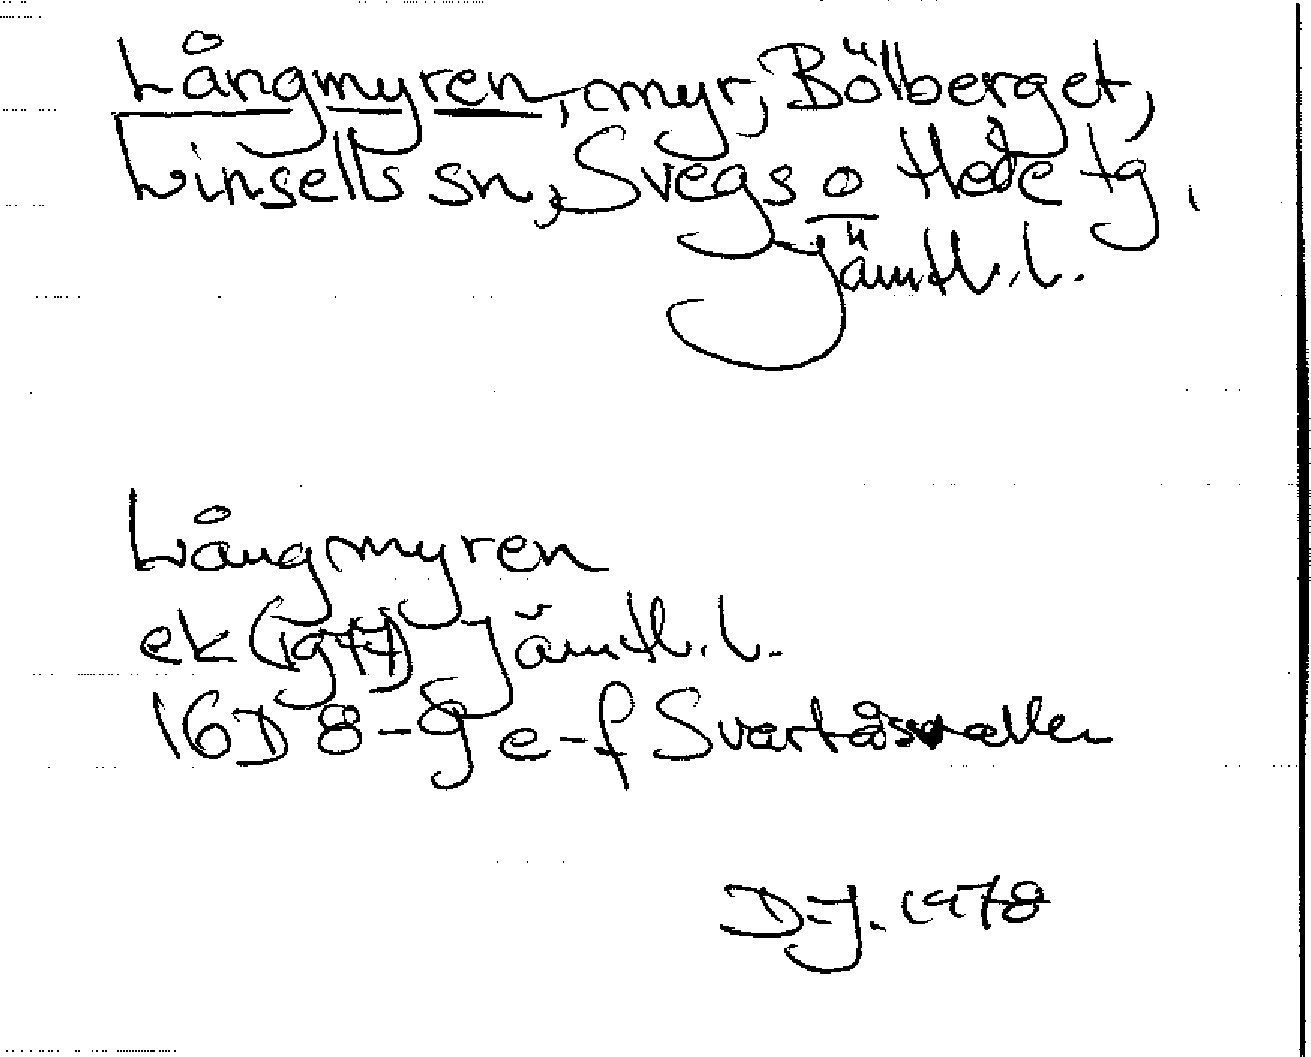 Långmyren, myr, Bölberget,
Linsells sn, Svegs o Hede tg,
Jämtl. l.
Långmyren
ek (1977) Jämtl. l.
16D 8-9 e-f Svartåsvallen
D-J. 1978